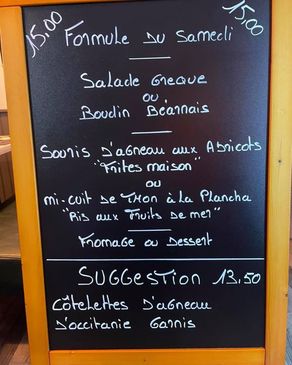 15,00 15,00
Formule Du Samedi
Salade Greque
ou
Boudin Béarnais
Souris D'agneau aux Abricots
"Frites maison"
ou
mi-cuit de Thon à la Plancha
"Ris aux Fruits de mer"
Fromage ou Dessert
SUGGESTION 13,50
Côtelettes D'agneau
D'occitanie Garnis